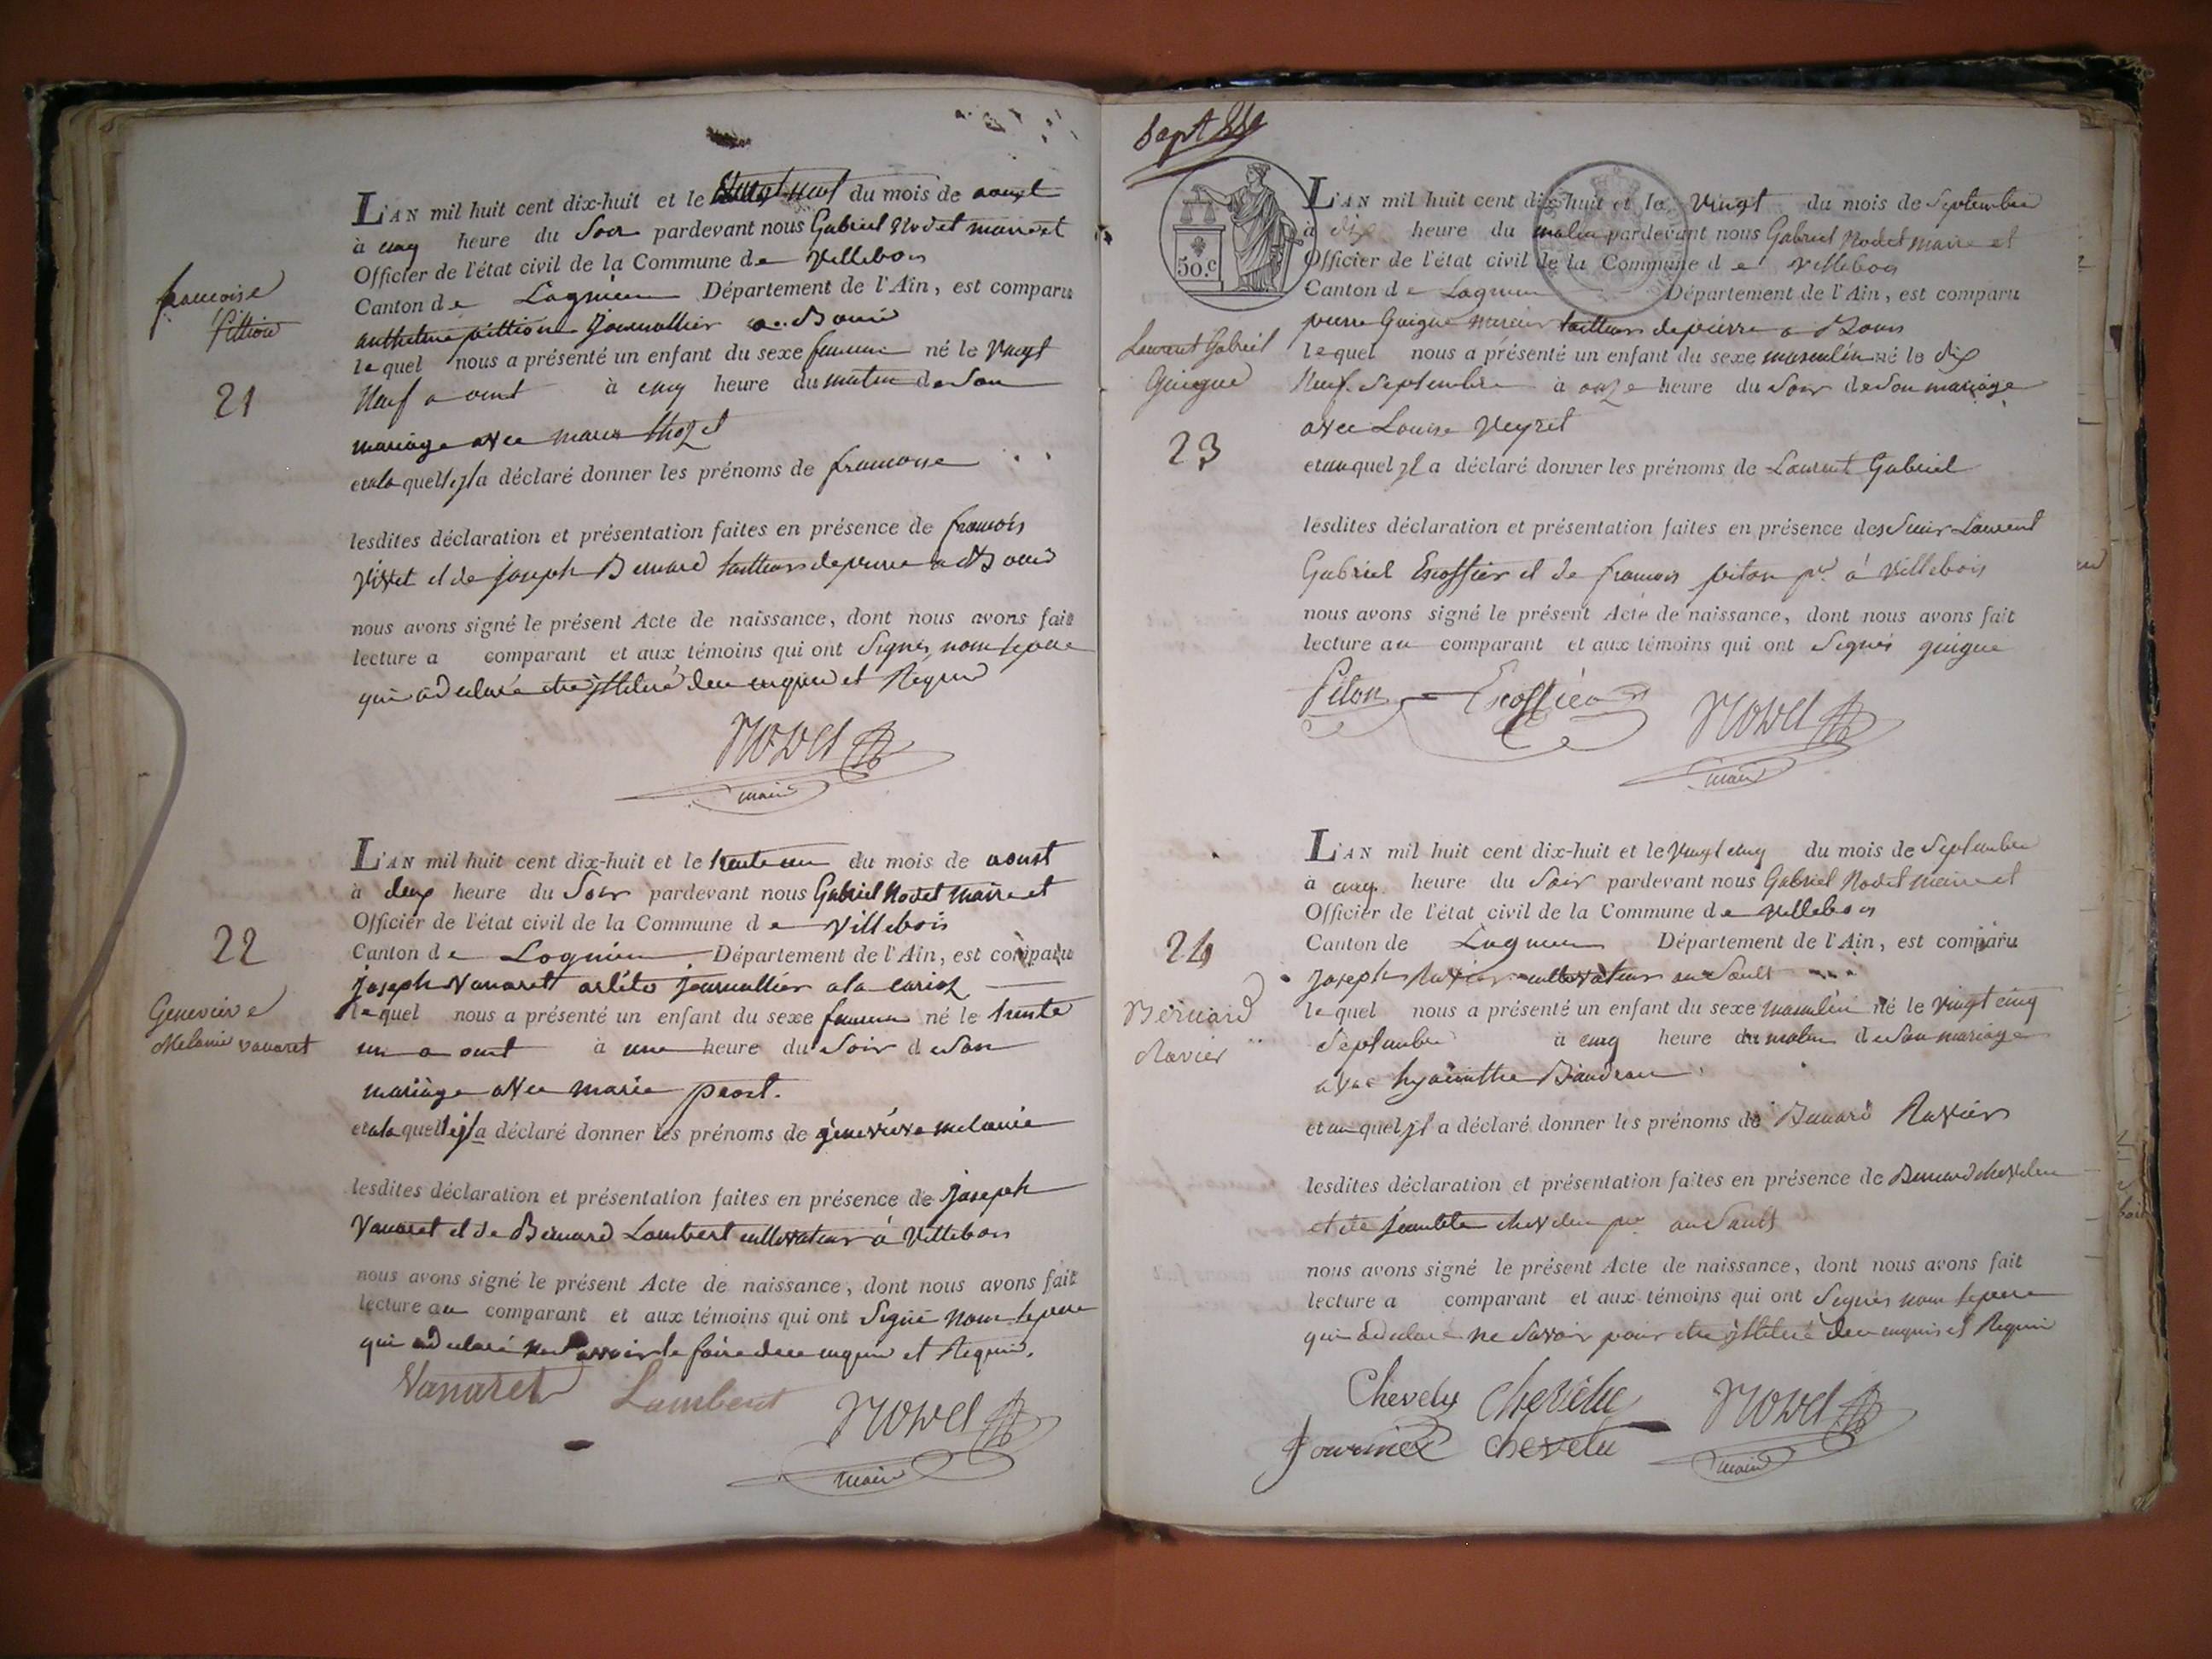 L'AN mil huit cent dix-huit et le vingt neuf du mois de aoust
à cinq heure du Soir pardevant nous Gabriel Nodet maire et
Officier de l'état civil de la Commune de Villebois
françoise
Canton de Lagnieu Département de l'Ain, est comparu
pittion
anthelme pittion journallier a Bouis
lequel nous a présenté un enfant du sexe feminin né le vingt
21
Neuf aoust à cinq heure du matin de Son
mariage avec marie thozet
et a laquelle il a déclaré donner les prénoms de francoise
lesdites déclaration et présentation faites en présence de francois
et de joseph Bernard tailleurs de pierre a Bouis
nous avons signé le présent Acte de naissance, dont nous avons fait
lecture a comparant et aux témoins qui ont Signés, non le pere
qui a declaré etre illiteré de ce enquis et Requis
Nodet
maire
L'AN mil huit cent dix-huit et le trente un du mois de aoust
à deux heure du Soir pardevant nous Gabriel Nodet Maire et
Officier de l'état civil de la Commune de Villebois
22
Canton de Lagnieu Département de l'Ain, est comparu
joseph Vanaret journallier a la
Genevieve
lequel nous a présenté un enfant du sexe feminin né le trente
Melanie vanaret
un aoust à une heure du Soir de Son
mariage avec marie prost.
et a laquelle il a déclaré donner les prénoms de genevieve melanie
lesdites déclaration et présentation faites en présence de joseph
Vanaret et de Bernard Lambert cultivateurs à Villebois
nous avons signé le présent Acte de naissance, dont nous avons fait
lecture au comparant et aux témoins qui ont Signé non le pere
qui a declaré ne Savoir le faire de ce enquis et Requis.
Vanaret Lambert Nodet
maire
Sept 
L'AN mil huit cent dix-huit et le vingt du mois de Septembre
à dix heure du matin pardevant nous Gabriel Nodet maire et
50.c
Officier de l'état civil de la Commune de Villebois
Canton de Lagnieu Département de l'Ain, est comparu
pierre Guigue tailleur de pierre a Bouis
Laurent Gabriel
lequel nous a présenté un enfant du sexe masculin né le dix
Guigue
Neuf Septembre à onze heure du Soir de Son mariage
avec Louise Veyret
23
et auquel il a déclaré donner les prénoms de Laurent Gabriel
lesdites déclaration et présentation faites en présence de Sieur Laurent
Gabriel Escoffier et de francois piton pre à Villebois
nous avons signé le présent Acte de naissance, dont nous avons fait
lecture au comparant et aux témoins qui ont Signés guigue
Piton Escoffier Nodet
maire
L'AN mil huit cent dix-huit et le vingt cinq du mois de Septembre
à cinq heure du Soir pardevant nous Gabriel Nodet maire et
Officier de l'état civil de la Commune de Villebois
24
Canton de Lagnieu Département de l'Ain, est comparu
joseph Ravier cultivateur au Sault
Bernard
lequel nous a présenté un enfant du sexe masculin né le vingt cinq
Ravier
Septembre à cinq heure du matin de Son mariage
avec hyacinthe
et auquel il a déclaré donner les prénoms de Bernard Ravier
lesdites déclaration et présentation faites en présence de Bernard chevelu
et de chevelu pre au Sault
nous avons signé le présent Acte de naissance, dont nous avons fait
lecture a comparant et aux témoins qui ont Signés non le pere
qui a declaré ne Savoir pour etre illiteré de ce enquis et Requis
Chevelu Chevelu Nodet
chevelu
maire